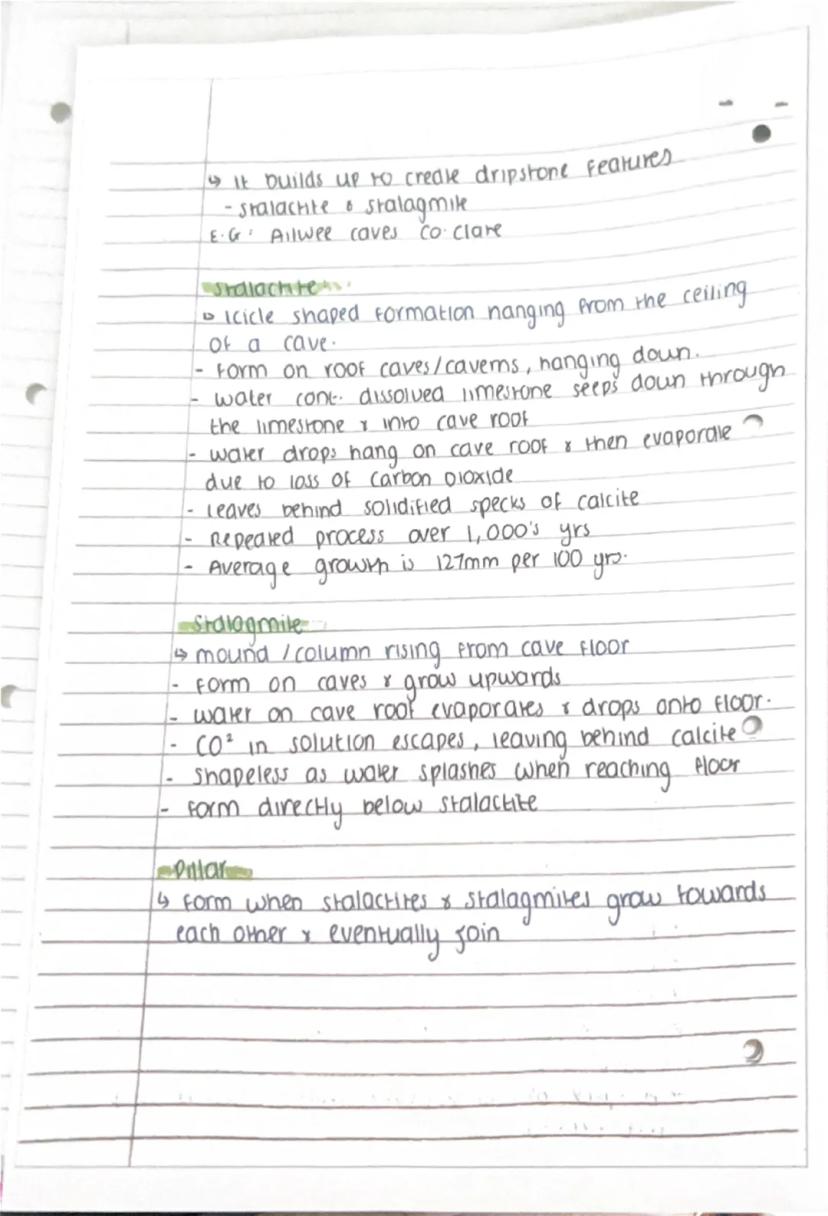 ↳ It builds up to create dripstone features
- stalactite & stalagmite
E.G: Ailwee caves co. clare
Stalactite
↳ Icicle shaped formation hanging from the ceiling
of a cave.
- form on roof caves/caverns, hanging down.
- water cont. dissolved limestone seeps down through
the limestone & into cave roof
- water drops hang on cave roof & then evaporate
due to loss of carbon dioxide
- leaves behind solidified specks of calcite
- Repeated process over 1,000's yrs
- Average growth is 127mm per 100 yrs.
Stalagmite
↳ mound / column rising from cave floor
- form on caves & grow upwards
- water on cave roof evaporates & drops onto floor.
- CO² in solution escapes, leaving behind calcite
- shapeless as water splashes when reaching floor
- form directly below stalactite
Pillar
↳ form when stalactites & stalagmites grow towards
each other & eventually join